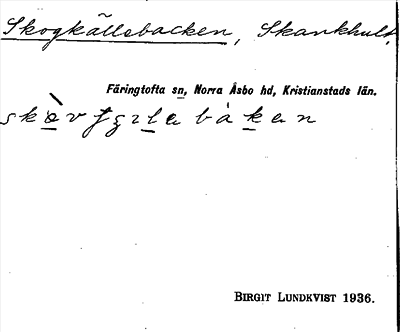 Skogkällsbacken, Skankhult,
Färingtofta sn, Norra Åsbo hd, Kristianstads län.
BIRGIT LUNDKVIST 1936.